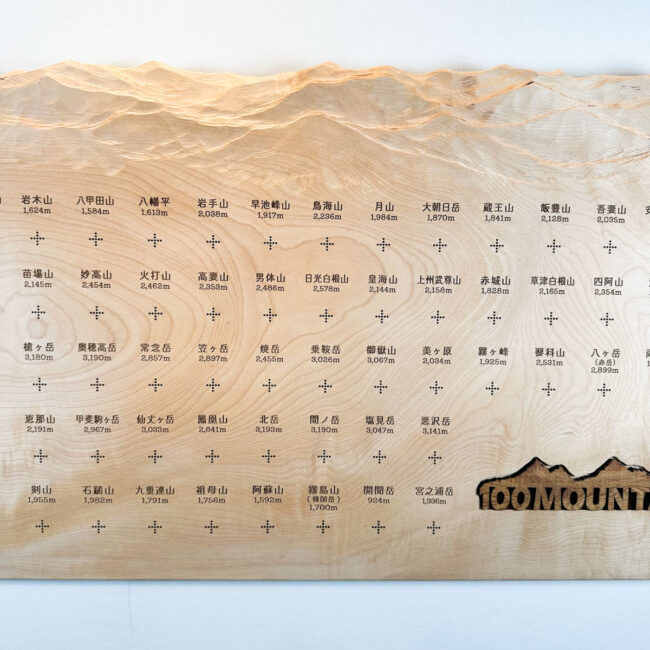 山 岩木山 八甲田山 八幡平 岩手山 早池峰山 鳥海山 月山 大朝日岳 蔵王山 飯豊山 吾妻山 安
1,624m 1,584m 1,613m 2,038m 1,917m 2,236m 1,984m 1,870m 1,841m 2,128m 2,035m
苗場山 妙高山 火打山 高妻山 男体山 日光白根山 皇海山 上州武尊山 赤城山 草津白根山 四阿山
2,145m 2,454m 2,462m 2,353m 2,486m 2,578m 2,144m 2,158m 1,828m 2,165m 2,354m
槍ヶ岳 奥穂高岳 常念岳 笠ヶ岳 焼岳 乗鞍岳 御嶽山 美ヶ原 霧ヶ峰 蓼科山 八ヶ岳
(赤岳)
3,180m 3,190m 2,857m 2,897m 2,455m 3,026m 3,067m 2,034m 1,925m 2,531m 2,899m
恵那山 甲斐駒ヶ岳 仙丈ヶ岳 鳳凰山 北岳 間ノ岳 塩見岳 悪沢岳
2,191m 2,967m 3,033m 2,841m 3,193m 3,190m 3,047m 3,141m
剣山 石鎚山 九重連山 祖母山 阿蘇山 霧島山 開聞岳 宮之浦岳
(韓国岳)
1,955m 1,982m 1,791m 1,756m 1,592m 1,700m 924m 1,936m
100MOUNT